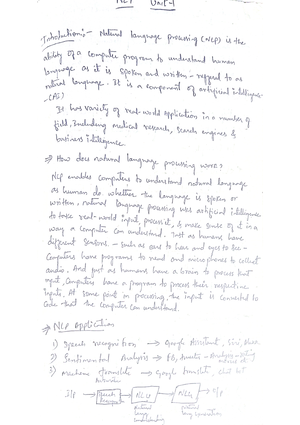 NLP Unit-1
Introduction:- Natural language processing (NLP) is the
ability of a computer program to understand human
language as it is spoken and written - reffed to as
natural language. It is a component of artificial intelligence
(AI)
It has variety of real-world application in a number of
field, Including medical research, search engines &
business intelligence.
How does natural language processing work?
NLP enables computers to understand natural language
as human do whether the language is spoken or
written, natural language processing uses artificial intelligence
to take real-world input, process it, & make sense of it in a
way a computer can understand. Just as humans have
different sensors - such as ears to hear and eyes to see -
Computers have programs to read and microphones to collect
audio. And just as humans have a brain to process that
input, Computers have a program to process their respective
inputs. At some point in processing, the input is converted to
code that the computer can understand.
NLP Application
1) Speech recognition → Google Assistant, Siri,
2) Sentimental Analysis → FB,
3) Machine translate → Google translate, chat bot
I/P → Speech → NLU → NLG → O/P
natural language understanding
natural lang generation